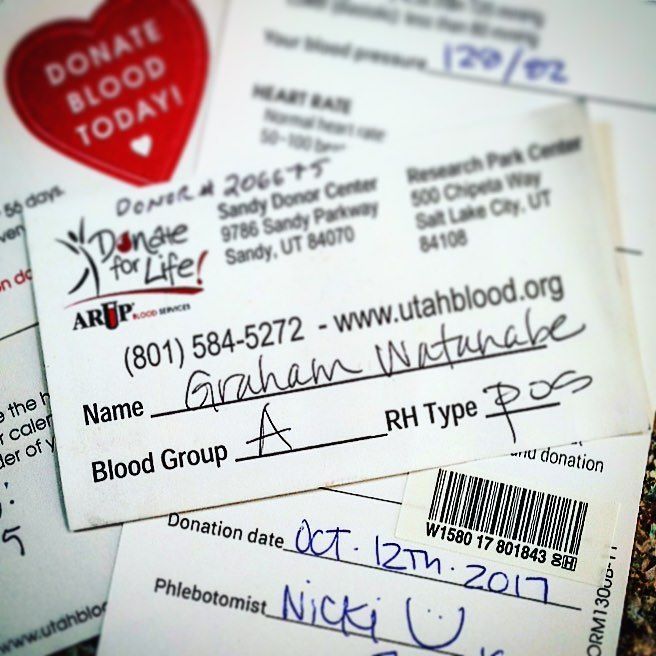 DONATE
BLOOD
TODAY!
Your blood pressure 120/82
HEART RATE
Normal heart rate
50-100
56 days.
DONOR # 206675
Donate
for Life!
ARUP BLOOD SERVICES
Sandy Donor Center
9786 Sandy Parkway
Sandy, UT 84070
Research Park Center
500 Chipeta Way
Salt Lake City, UT
84108
(801) 584-5272 - www.utahblood.org
Name Graham Watanabe
Blood Group A RH Type pos
and donation
W1580 17 801843
Donation date Oct. 12th. 2017
Phlebotomist Nicki
www.utahbloo